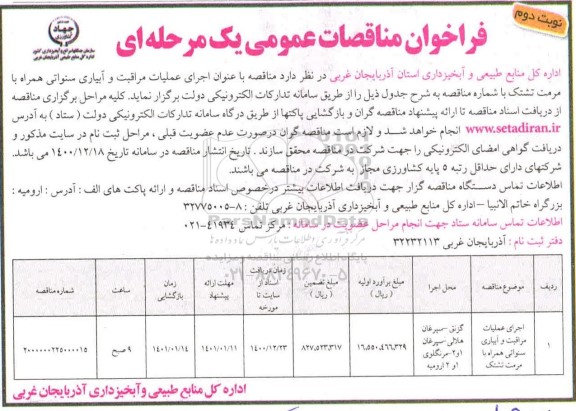 نوبت دوم
فراخوان مناقصات عمومی یک مرحله ای
اداره کل منابع طبیعی و آبخیزداری استان آذربایجان غربی در نظر دارد مناقصه با عنوان اجرای عملیات مراقبت و آبیاری سنواتی همراه با
مرمت تشتک با شماره مناقصه به شرح جدول ذیل را از طریق سامانه تدارکات الکترونیکی دولت برگزار نماید. کلیه مراحل برگزاری مناقصه
از دریافت اسناد مناقصه تا ارائه پیشنهاد مناقصه گران و بازگشایی پاکتها از طریق درگاه سامانه تدارکات الکترونیکی دولت ( ستاد ) به آدرس
www.setadiran.ir انجام خواهد شد و لازم است مناقصه گران درصورت عدم عضویت قبلی ، مراحل ثبت نام در سایت مذکور و
دریافت گواهی امضای الکترونیکی را جهت شرکت در مناقصه محقق سازند . تاریخ انتشار مناقصه در سامانه تاریخ ۱۴۰۰/۱۲/۱۸ می باشد.
شرکتهای دارای حداقل رتبه ۵ پایه کشاورزی مجاز به شرکت در مناقصه می باشند.
اطلاعات تماس دستگاه مناقصه گزار جهت دریافت اطلاعات بیشتر درخصوص اسناد مناقصه و ارائه پاکت های الف : آدرس : ارومیه :
بزرگراه خاتم الانبیا – اداره کل منابع طبیعی و آبخیزداری آذربایجان غربی تلفن : ۸-۳۲۷۷۵۰۰۵
اطلاعات تماس سامانه ستاد جهت انجام مراحل عضویت در سامانه : مرکز تماس ۴۱۹۳۴-۰۲۱
دفتر ثبت نام : آذربایجان غربی ۳۲۲۳۲۱۱۳
ParsNamadData
۰۲۱-۸۸۳۴۹۶۷۰-۵
ردیف موضوع مناقصه محل اجرا مبلغ برآورد اولیه ( ریال ) مبلغ تضمین ( ریال ) زمان دریافت اسناد از سایت تا مورخه مهلت ارائه پیشنهاد زمان بازگشایی ساعت شماره مناقصه
۱ اجرای عملیات مراقبت و آبیاری سنواتی همراه با مرمت تشتک گزنق -سپرغان هلالی -سپرغان ۱و۲-مرنگلوی ۱و ۲ ارومیه ۱۶,۵۵۰,۴۶۶,۳۲۹ ۸۲۷,۵۲۳,۳۱۷ ۱۴۰۰/۱۲/۲۳ ۱۴۰۱/۰۱/۱۱ ۱۴۰۱/۰۱/۱۴ ۹ صبح ۲۰۰۰۰۰۰۲۲۵۰۰۰۰۱۵
اداره کل منابع طبیعی و آبخیزداری آذربایجان غربی